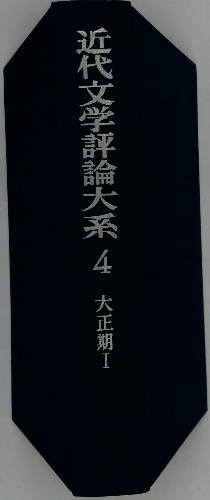 近代文学評論大系 4
大正期Ⅰ